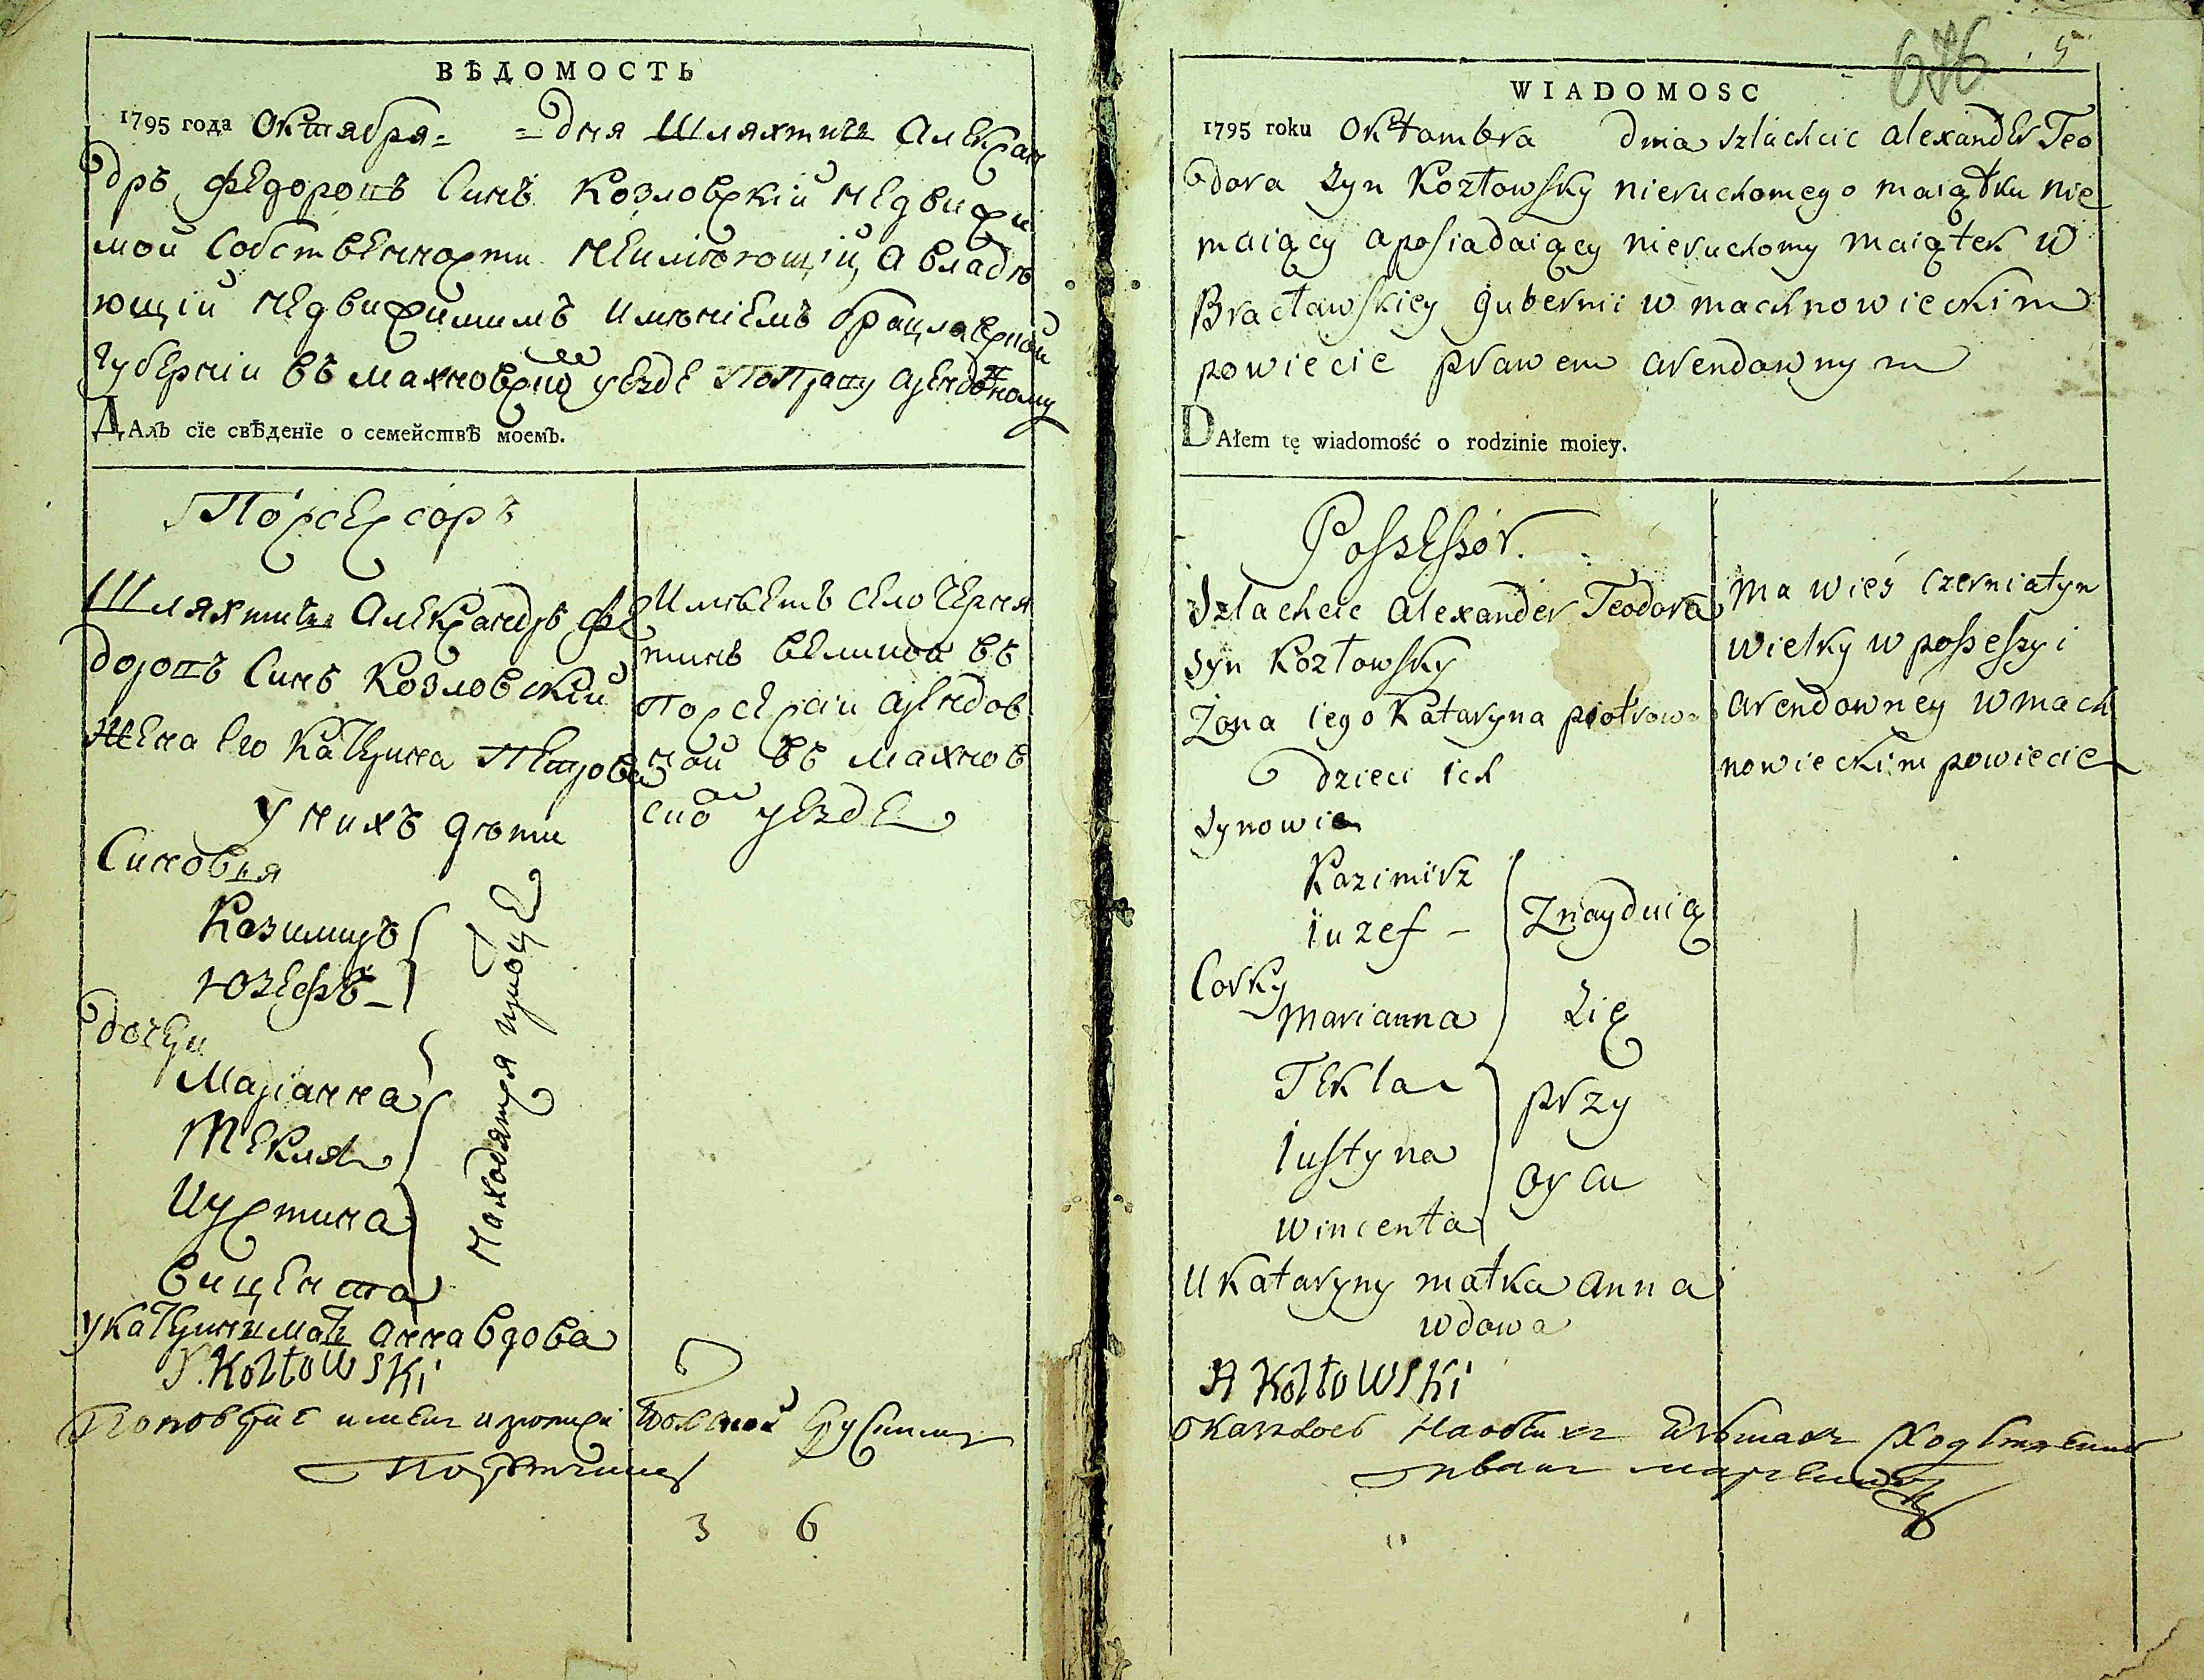 ВѢДОМОСТЬ
1795 года Октября = = дня Шляхтичь Алексан
дръ Федоровъ Синъ Козловскій Недвижи
мой Собственности Неимѣющій, А владѣ
ющій недвижимимъ имѣніемъ брацлавской
губерніи въ махновском уезде По Праву Арендовному
ДАлъ сїе свѣденїе о семействѣ моемъ.
Поссессоръ
Шляхтичь Александръ Фе
доровъ Синъ Козловскій
Жена Его Катерина Петрова
У нихъ дѣти
Синовья
Казимиръ
Юзефъ
дочери
Маріанна
Текля
Иустина
Вицента
Находятся при отце
У Катерини мать Анна вдова
Имѣетъ село Черня
тинъ Великой въ
Поссессіи Арендов
ной въ Махнов
ском уезде
Kozłowski
3 6
676 5
WIADOMOSC
1795 roku Oktambra dnia szlachcic Alexander Teo
dora Syn Kozłowsky nieruchomego maiątku nie
maiący a posiadaiący nieruchomy maiątek W
Bracławskiey gubernii w machnowieckim
powiecie prawem arendownym
DAłem tę wiadomość o rodzinie moiey.
Possessor.
Szlachcic Alexander Teodora
syn Kozłowsky
Żona iego Kataryna piotrowa
dzieci ich
Synowie
Kazimirz
iuzef -
Corky
Marianna
Tekla
iustyna
wincenta
Znayduią
Się
przy
oycu
U Kataryny matka Anna
wdowa
Ma wieś Czerniatyn
wielky w possessyi
arendowney w mach
nowieckim powiecie
A Kozłowski